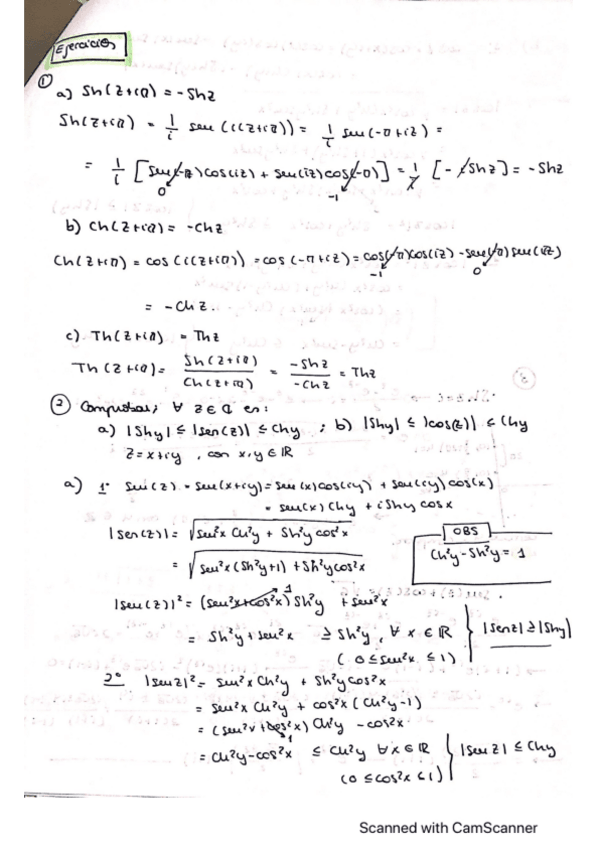 Ejercicios
① a) Sh(z+iπ) = -Shz
Sh(z+iπ) = 1/i sen(i(z+iπ)) = 1/i sen(-π+iz) =
= 1/i [sen(-π)cos(iz) + sen(iz)cos(-π)] = 1/i [-iShz] = -Shz
0 -1
b) Ch(z+iπ) = -Chz
Ch(z+iπ) = cos(i(z+iπ)) = cos(-π+iz) = cos(-π)cos(iz) - sen(-π)sen(iz)
-1 0
= -Chz.
c) Th(z+iπ) = Thz
Th(z+iπ) = Sh(z+iπ)/Ch(z+iπ) = -Shz/-Chz = Thz
② Comprobar, ∀ z∈ℂ es:
a) |Shy| ≤ |sen(z)| ≤ Chy ; b) |Shy| ≤ |cos(z)| ≤ Chy
z=x+iy , con x,y∈ℝ
a) 1º sen(z) = sen(x+iy) = sen(x)cos(iy) + sen(iy)cos(x)
= sen(x)Chy + iShy cosx
|sen(z)| = √sen²x Ch²y + Sh²y cos²x
OBS
= √sen²x (Sh²y+1) + Sh²y cos²x
Ch²y - Sh²y = 1
|sen(z)|² = (sen²x+cos²x) Sh²y + sen²x
1
= Sh²y + sen²x ≥ Sh²y, ∀ x∈ℝ } |senz| ≥ |Shy|
(0 ≤ sen²x ≤ 1)
2º |senz|² = sen²x Ch²y + Sh²y cos²x
= sen²x Ch²y + cos²x (Ch²y-1)
= (sen²x + cos²x) Ch²y - cos²x
1
= Ch²y - cos²x ≤ Ch²y ∀ x∈ℝ } |senz| ≤ Chy
(0 ≤ cos²x ≤ 1)
Scanned with CamScanner